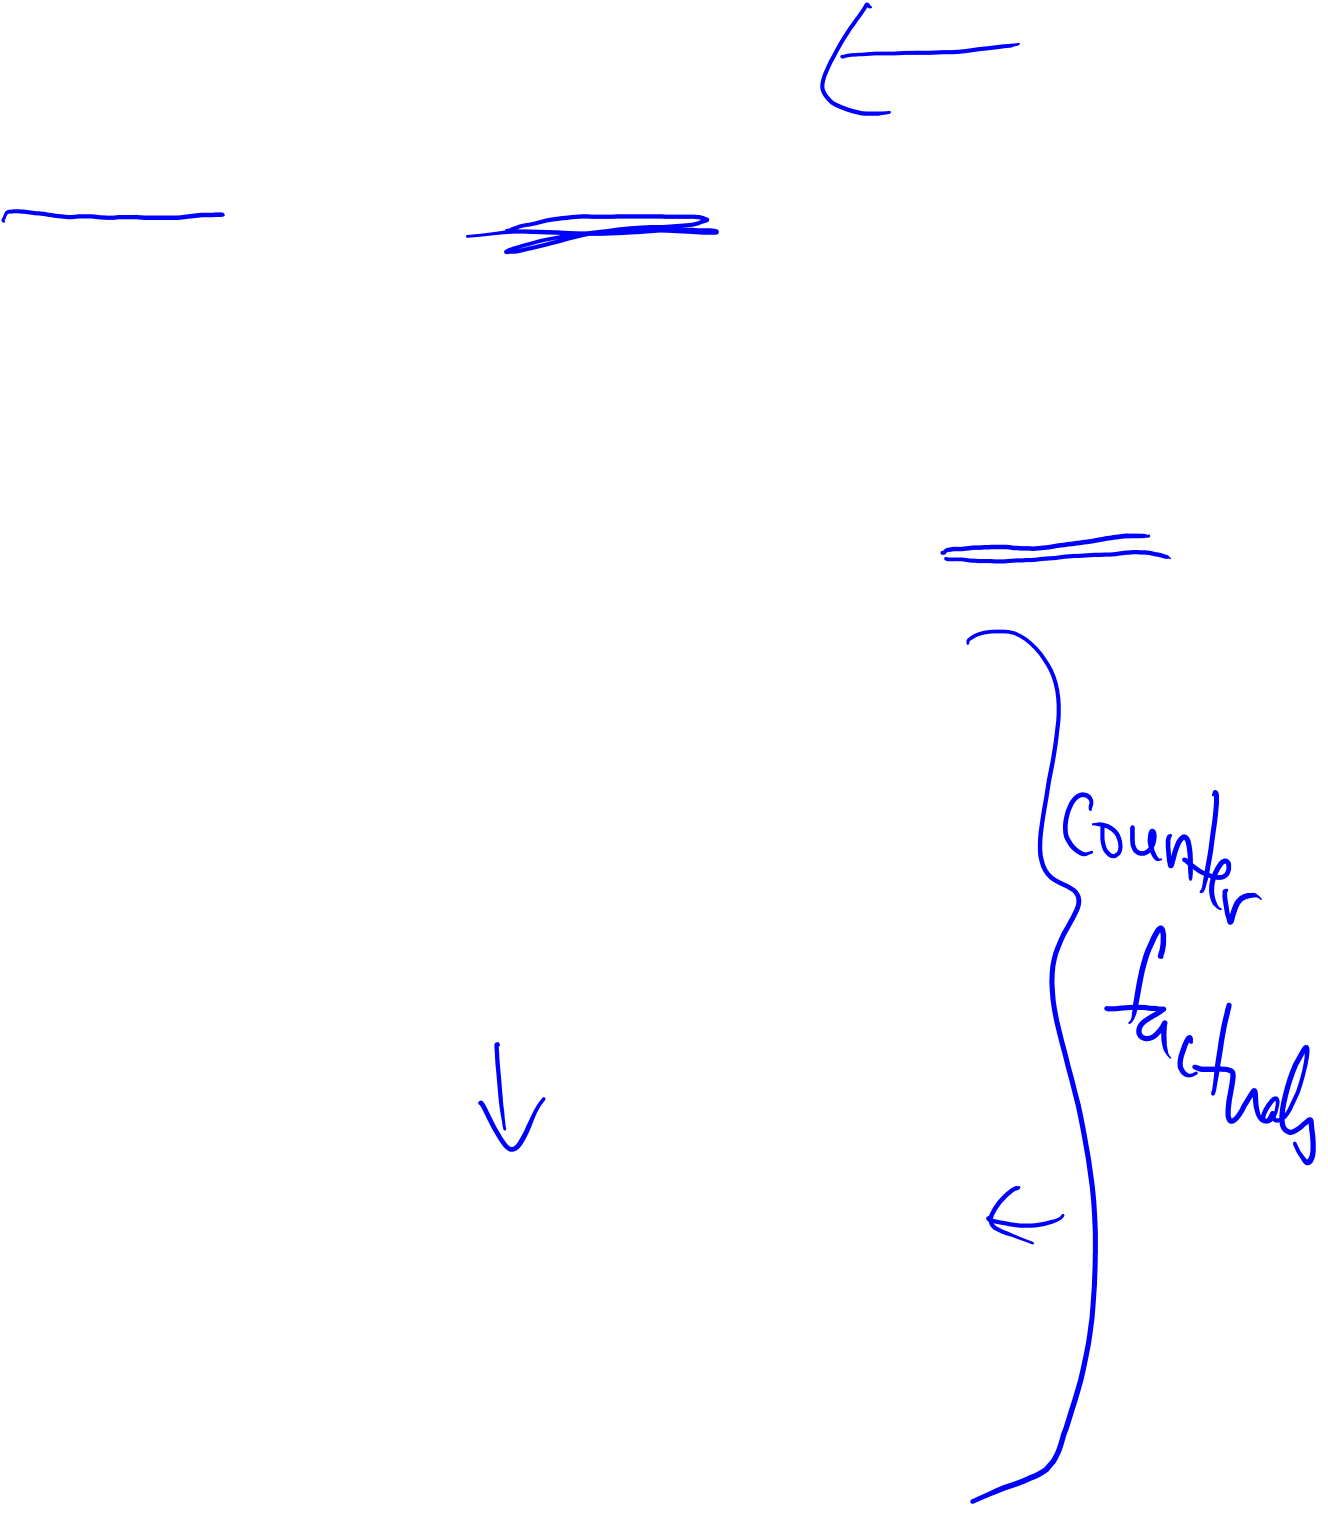 Counter
factuals